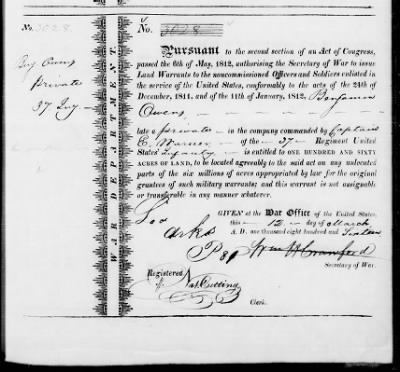 No. 3028
No. 3028
PURSUANT to the second section of an Act of Congress,
passed the 6th of May, 1812, authorising the Secretary of War to issue
Land Warrants to the noncommissioned Officers and Soldiers enlisted in
the service of the United States, conformably to the acts of the 24th of
December, 1811, and of the 11th of January, 1812, Benjamin
Owens
late a private in the company commanded by Captain
E. Warner of the 37 Regiment United
States' Infantry is entitled to ONE HUNDRED AND SIXTY
ACRES OF LAND, to be located agreeably to the said act on any unlocated
parts of the six millions of acres appropriated by law for the original
grantees of such military warrants; and this warrant is not assignable
or transferable in any manner whatever.
GIVEN at the War Office of the United States,
this 12 day of March
A. D. one thousand eight hundred and Sixteen
Wm H Crawford
Secretary of War.
Registered
Nat. Cutting
Clerk.
Private
37 Inf
WAR DEPARTMENT